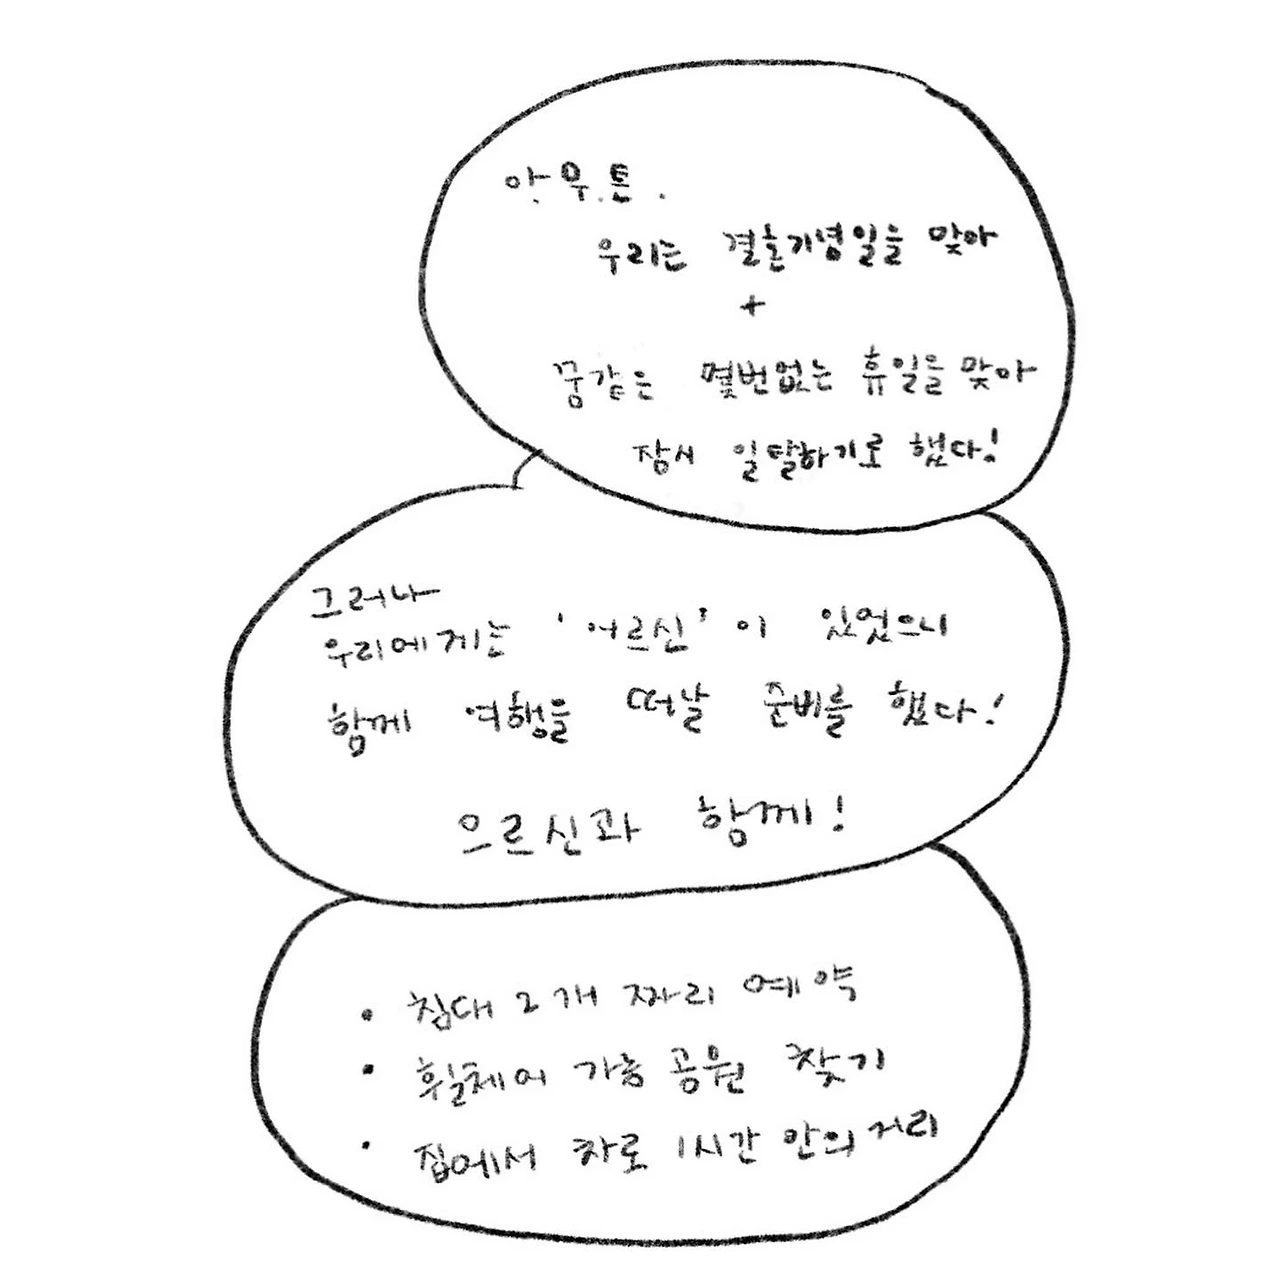 아.무.튼.
우리는 결혼기념일을 맞아
+
꿈같은 몇번없는 휴일을 맞아
잠시 일탈하기로 했다!
그러나
우리에게는 '어르신'이 있었으니
함께 여행을 떠날 준비를 했다!
으르신과 함께!
• 침대 2개 짜리 예약
• 휠체어 가능 공원 찾기
• 집에서 차로 1시간 안의 거리